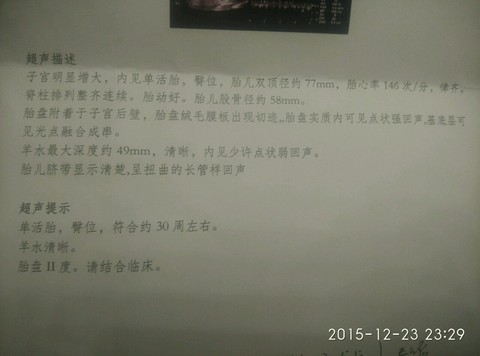 超声描述
子宫明显增大，内见单活胎，臀位，胎儿双顶径约77mm，胎心率146次/分，律齐。
脊柱排列整齐连续。胎动好。胎儿股骨径约58mm。
胎盘附着于子宫后壁，胎盘绒毛膜板出现切迹，胎盘实质内可见点状强回声，基底层可
见光点融合成串。
羊水最大深度约49mm，清晰，内见少许点状弱回声。
胎儿脐带显示清楚，呈扭曲的长管样回声
超声提示
单活胎，臀位，符合约30周左右。
羊水清晰。
胎盘II度。请结合临床。
2015-12-23 23:29